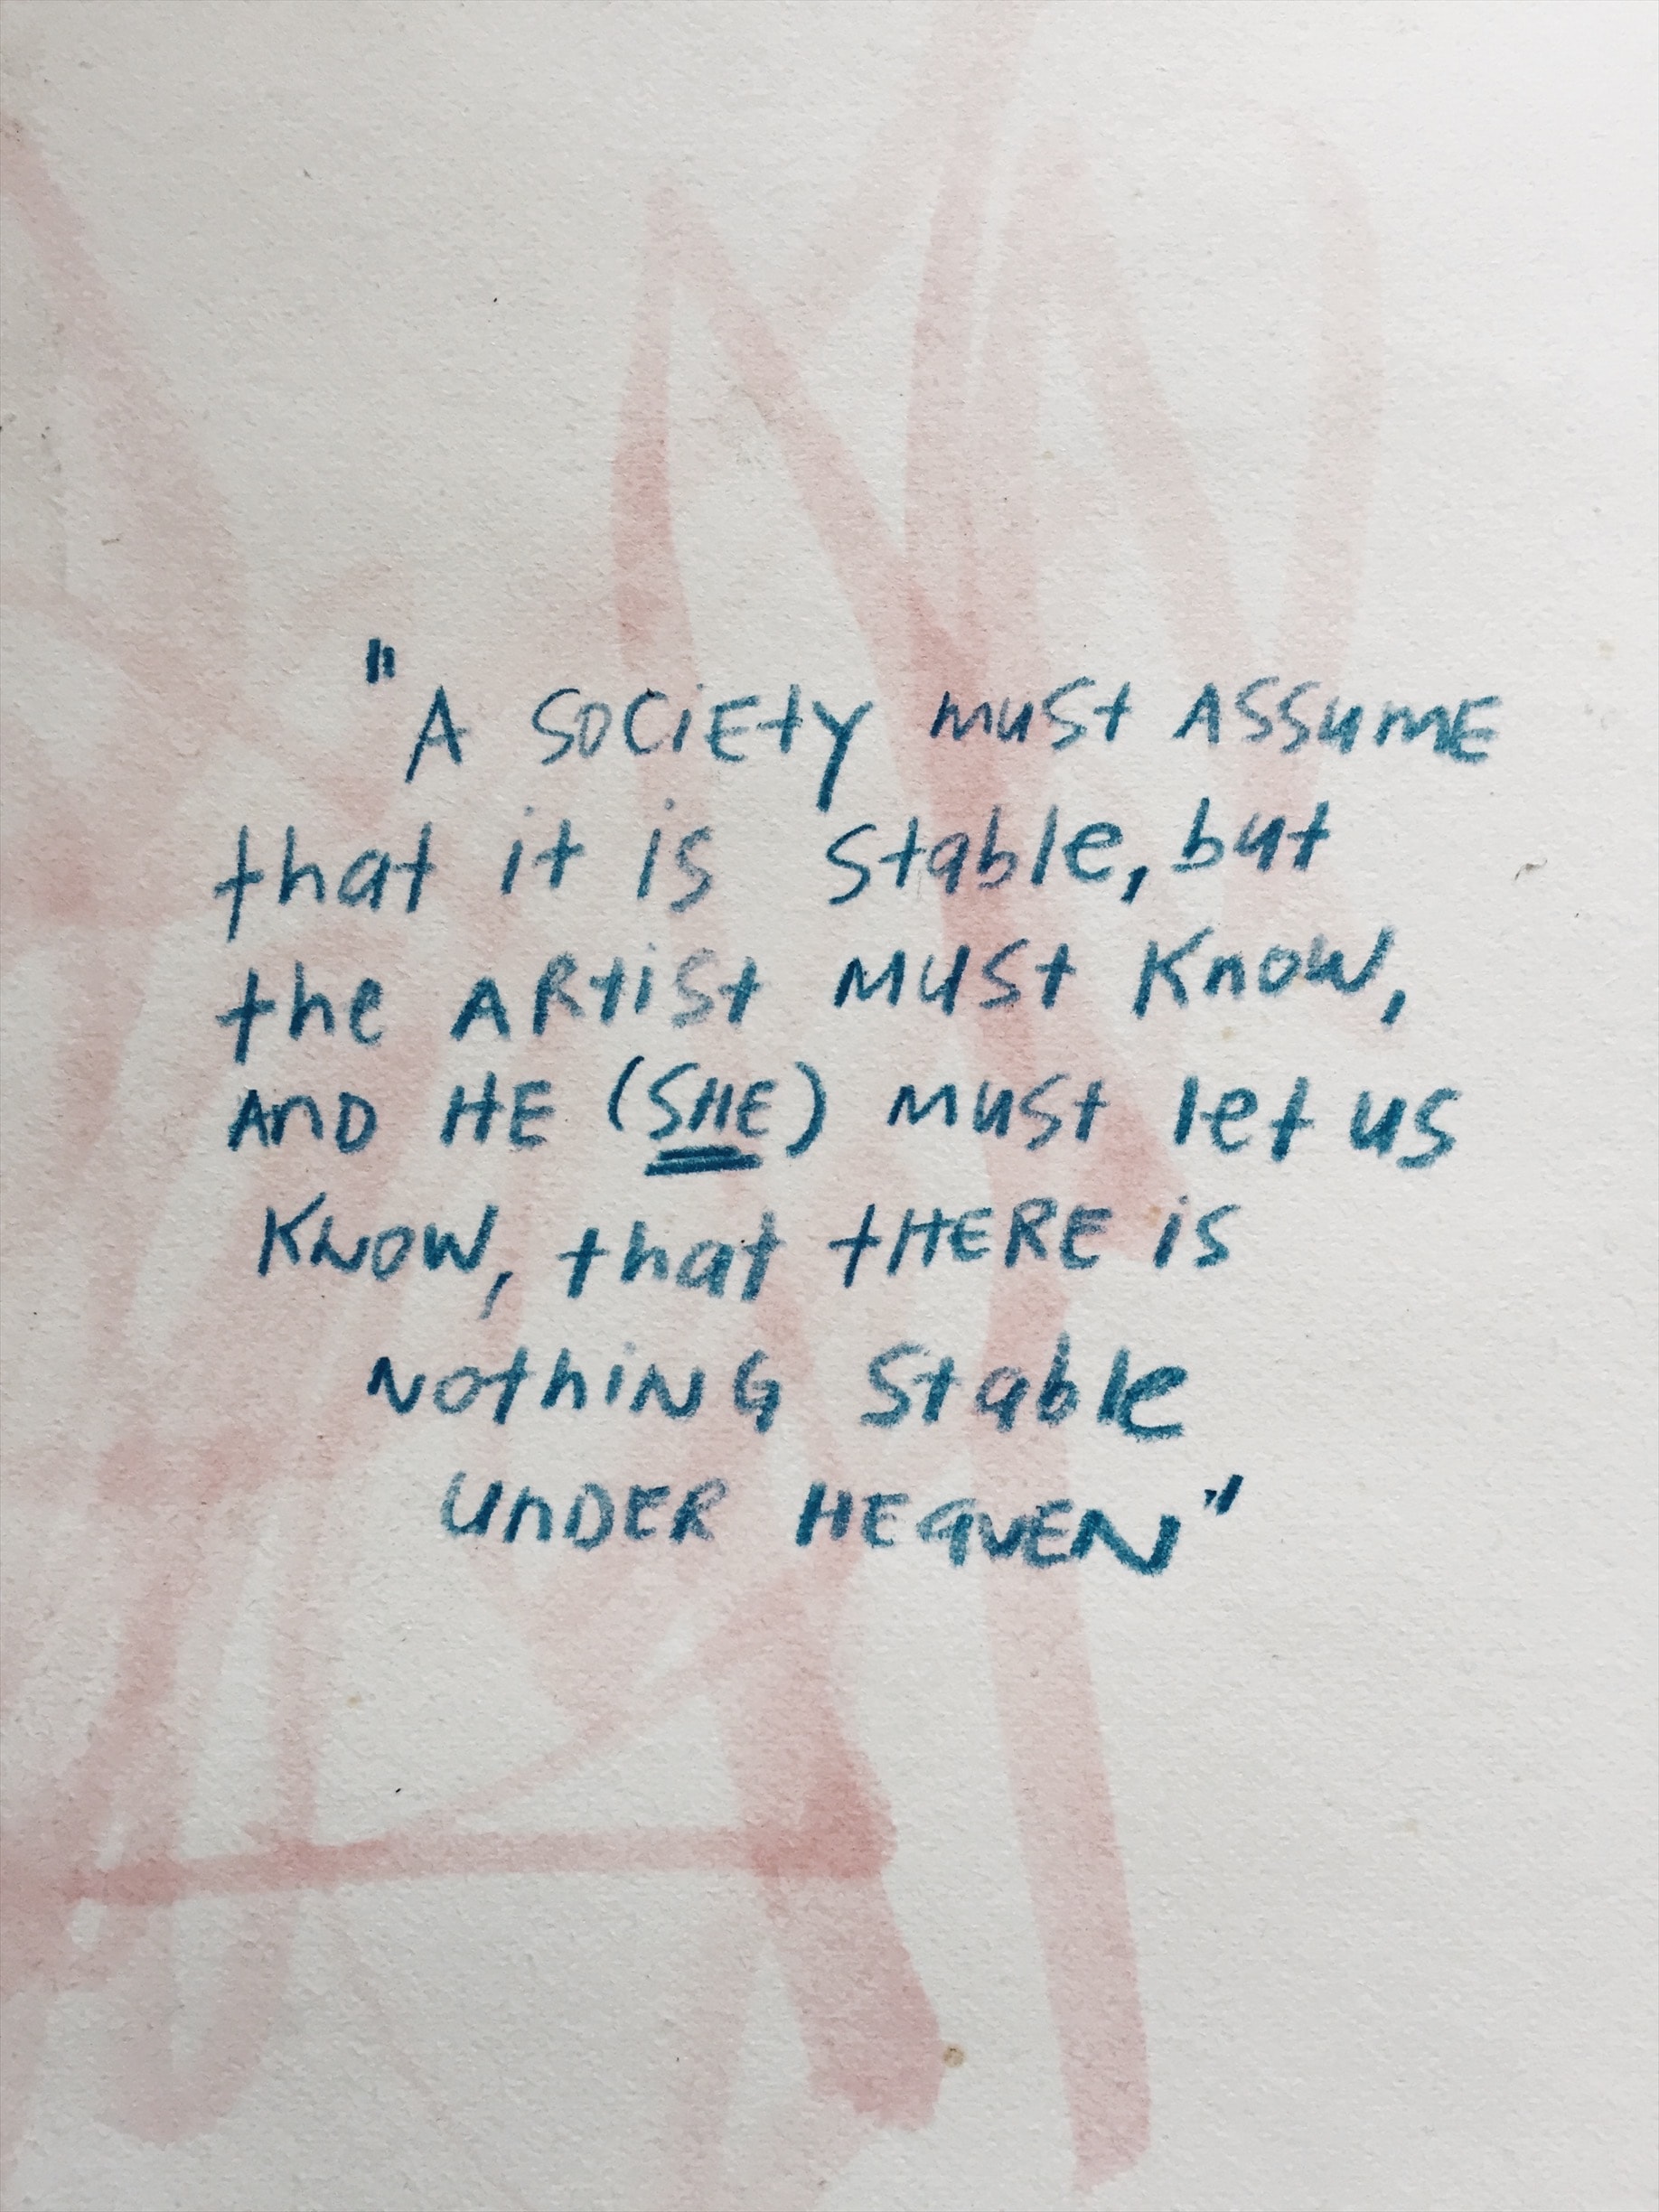 "A SOCiEty must ASSumE
that it is stable, but
the ARtiSt MuSt Know,
AnD HE (SHE) must let us
KNOW, that tHERE is
NothiNG Stable
UnDER HEaVEN"